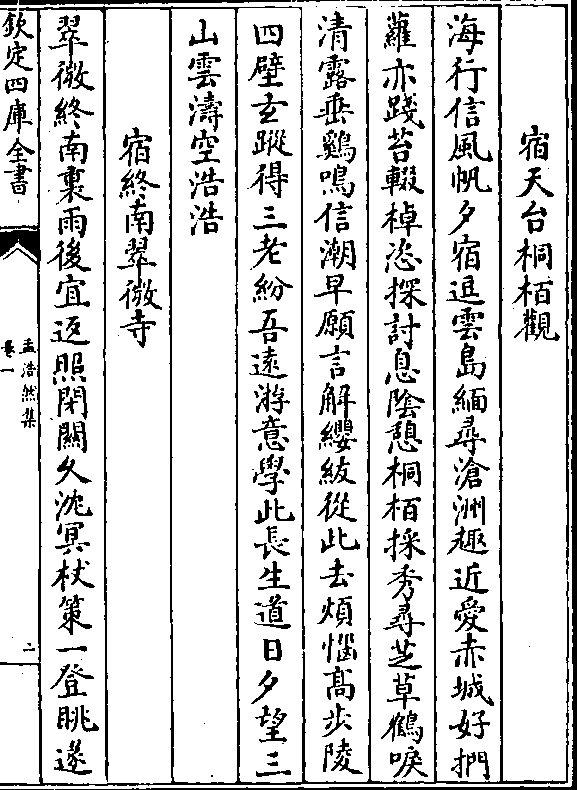 宿天台桐栢觀
海行信風帆夕宿逗雲島緬尋滄洲趣近愛赤城好捫
蘿亦踐苔輟棹恣探討息陰憩桐栢採秀尋芝草鶴唳
清露垂鷄鳴信潮早願言解纓紱從此去煩惱高步陵
四壁玄蹤得三老紛吾遠游意學此長生道日夕望三
山雲濤空浩浩
宿終南翠微寺
翠微終南裏雨後宜返照閉關久沈冥杖策一登眺遂
欽定四庫全書
孟浩然集
卷一
二